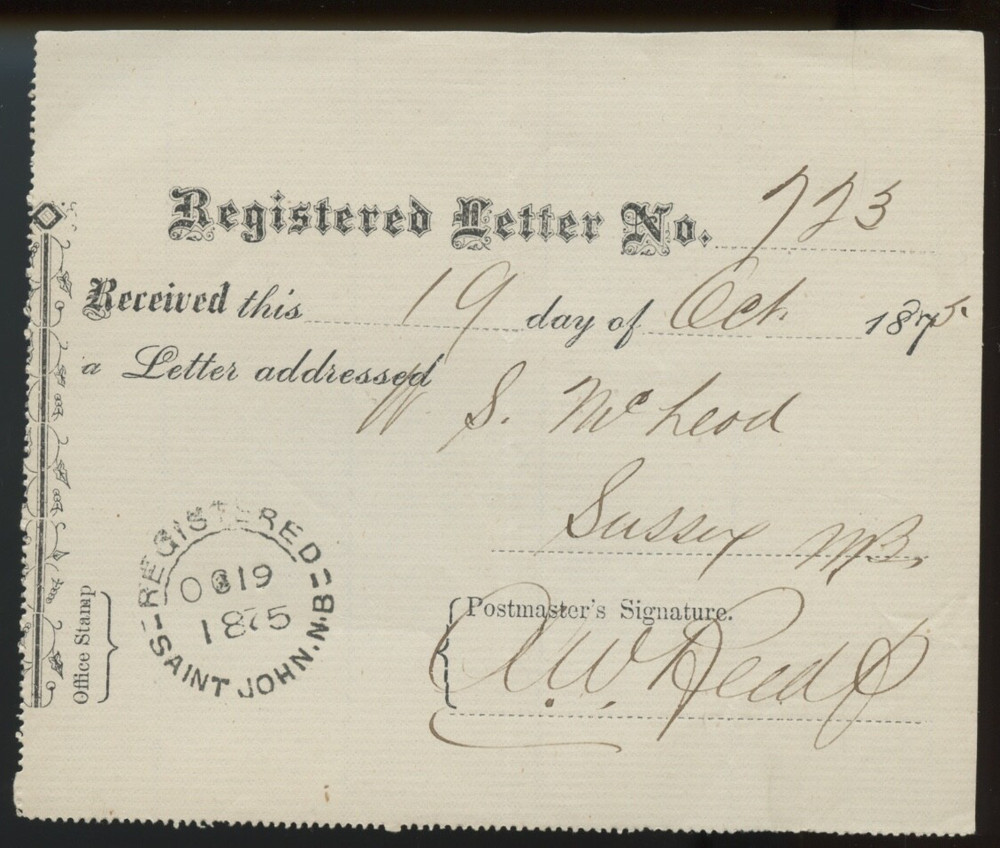 Registered Letter No. 723
Received this 19 day of Oct. 1875.
a Letter addressed
W S. McLeod
Sussex NB.
Office Stamp
REGISTERED
OC 19
1875
SAINT JOHN.N.B
Postmaster's Signature.
A.W. Reed